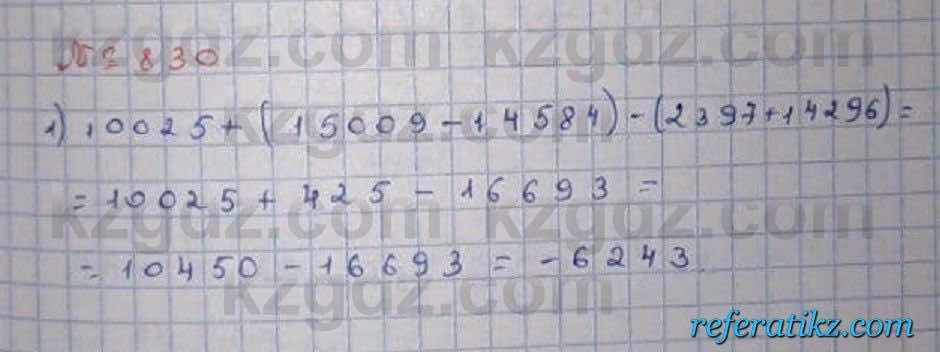 kzgdz.com kzgdz.com
№ 830
1) 10025+(15009-14584)-(2397+14296)=
=10025+425-16693=
kzgdz.com kzgdz.com
=10450-16693=-6243
kzgdz.com
referatikz.com